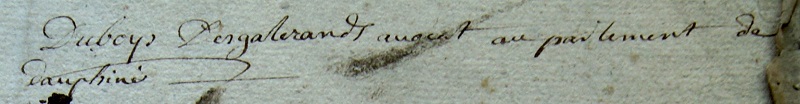 Duboys D'esgalerands avocat au parlement de
dauphiné